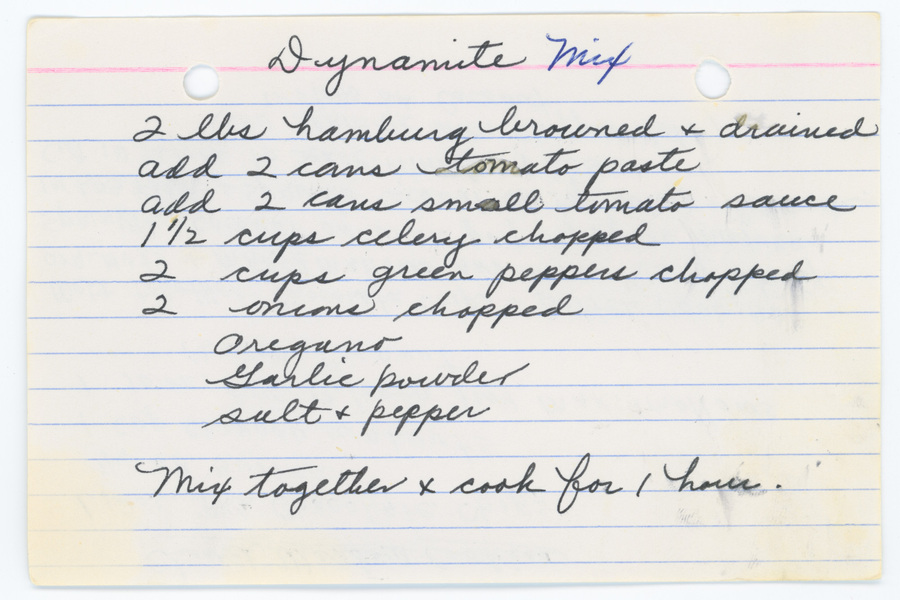 Dynamite Mix
2 lbs hamburg browned & drained
add 2 cans tomato paste
add 2 cans small tomato sauce
1 1/2 cups celery chopped
2 cups green peppers chopped
2 onions chopped
Oregano
Garlic powder
salt & pepper
Mix together & cook for 1 hour.